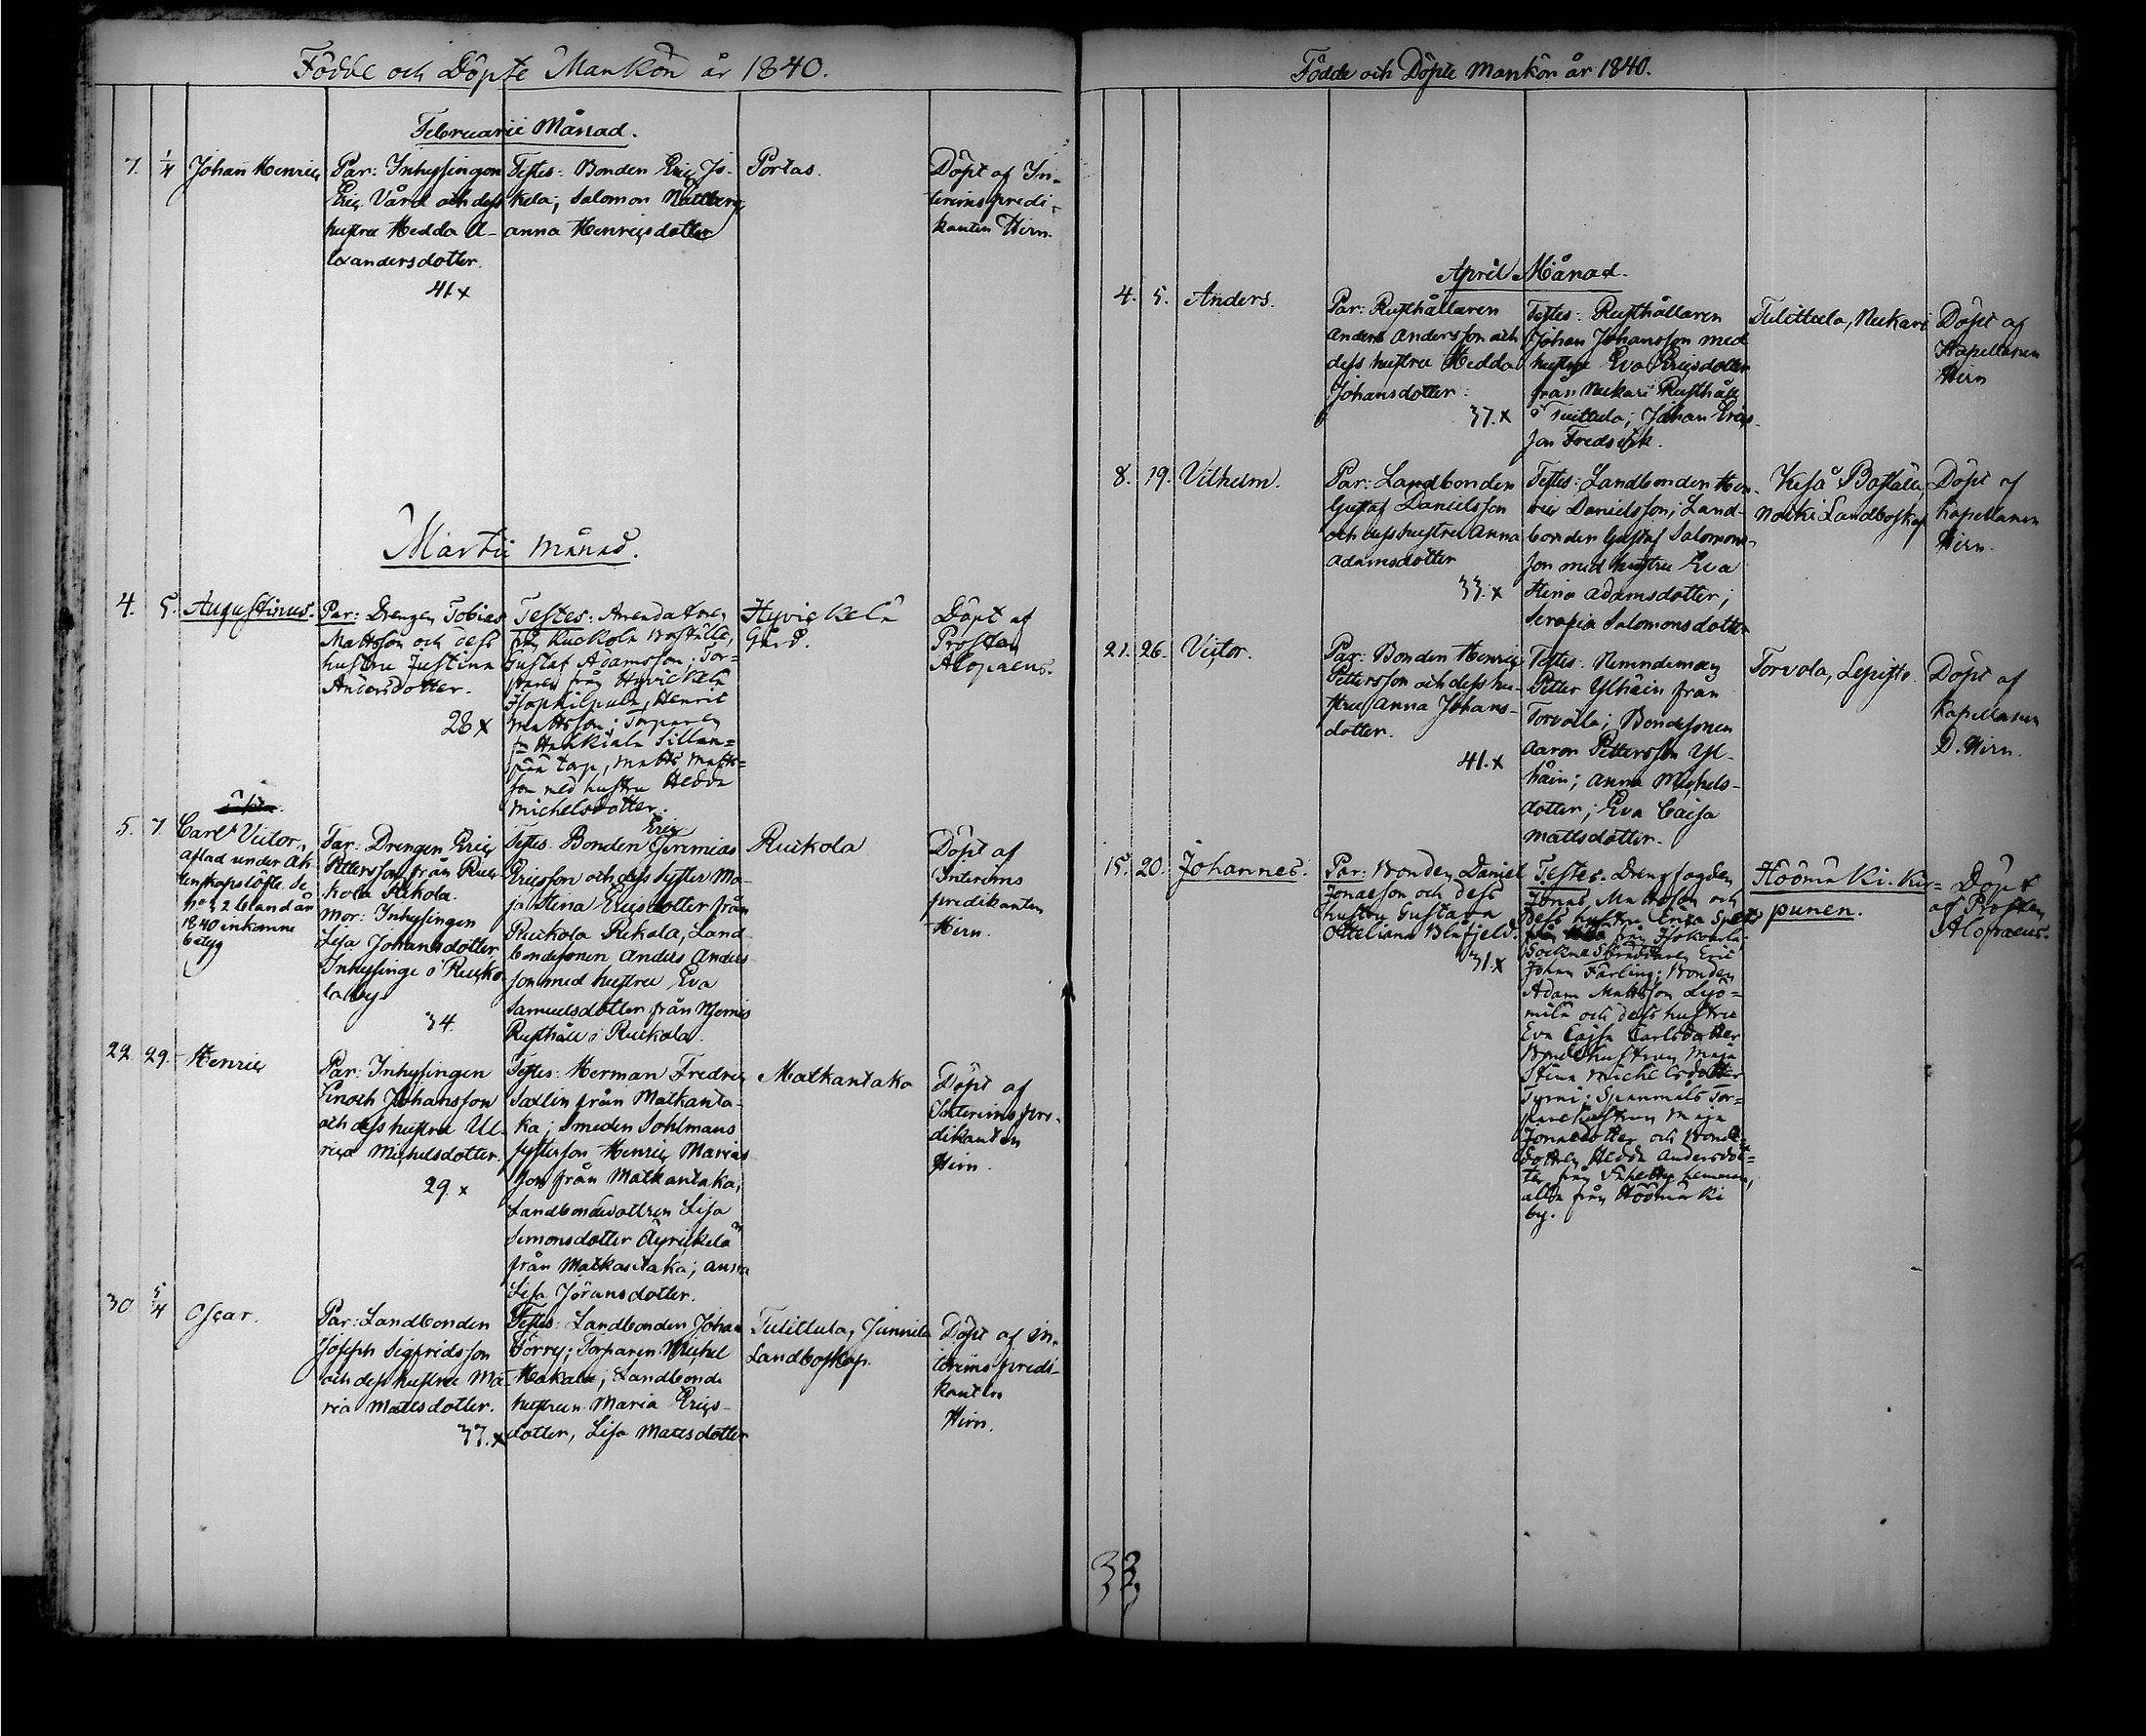 Födde och Döpte Mankön år 1840.
Februarii Månad.
7. 1/4 Johan Henric
Par: Inhysingen
Eric Vård och dess
hustru Hedda A-
lexandersdotter.
41 x
Testes: Bonden Eric Jo-
kela; Salomon
Anna Henricsdotter
Portas.
Döpt af In-
terimspredi-
kanten Hirn.
Martii månad.
4. 5. Augustinus.
Par: Drengen Tobias
Mattsson och dess
hustru Justina
Andersdotter.
28 x
Testes: Arendatoren
från Ruckola Boställe,
Gustaf Adamsson; Tor-
paren från Hyvickelä
Henric
Mattsson; Torparen
torp, Matts Matts-
son med hustru Hedda
Michelsdotter.
Hyvickelä
Gård.
Döpt af
Prosten
Alopaeus.
5. 7 Carl Victor,
aflad under äk-
tenskapslöfte. Se
No 22 bland år
1840 inkomne
betyg
Far: Drengen Eric
Pettersson från Ruc-
kola Rekola.
Mor: Inhysingen
Lisa Johansdotter,
Inhysinge i Rucko-
la by.
34.
Eric
Testes: Bonden Jeremias
Ericsson och dess syster Ma-
ja Stena Ericsdotter från
Ruckola Rekola, Land-
bondesonen Anders Anders-
son med hustru Eva
Samuelsdotter från
Rusthåll i Ruckola.
Ruckola
Döpt af
Interims
predikanten
Hirn.
22. 29. Henric
Par: Inhysingen
Enoch Johansson
och dess hustru Ul-
rica Michelsdotter.
29. x
Testes: Herman Fredric
Saxlin från Matkanta-
ka; Smeden Sohlmans
systerson Henric Marias
son från Matkantaka;
Landbondedottren Lisa
Simonsdotter
från Matkantaka; Anna
Lisa Jöransdotter.
Matkantaka
Döpt af
Interimspre-
dikanten
Hirn.
30. 5/4 Oscar.
Par: Landbonden
Joseph Sigfridsson
och dess hustru Ma-
ria Mattsdotter.
37. x
Testes: Landbonden Johan
Törry; Torparen Michel
Hakala; Landbonde
hustrun Maria Erics-
dotter, Lisa Mattsdotter
Tulittula, Junnila
Landboskap.
Döpt af In-
terims predi-
kanten
Hirn.
Födde och Döpte Mankön år 1840.
April Månad.
4. 5. Anders.
Par: Rusthållaren
Anders Andersson och
dess hustru Hedda
Johansdotter.
37. x
Testes: Rusthållaren
Johan Johansson med
hustru Eva Ericsdotter
från Nuckari Rusthåll
i Tulittula; Johan Erics-
son Fredric
Tulittula, Nuckari
Döpt af
Kapellanen
Hirn
8. 19. Vilhelm.
Par: Landbonden
Gustaf Danielsson
och dess hustru Anna
Adamsdotter
33. x
Testes: Landbonden Hen-
ric Danielsson; Land-
bonden Gustaf Salomons-
son med hustru Eva
Stina Adamsdotter;
Serafia Salomonsdotter
Boställe,
Landboskap
Döpt af
Kapellanen
Hirn.
21. 26. Victor.
Par: Bonden Henric
Pettersson och dess hu-
stru Anna Johans-
dotter.
41. x
Testes: Nemndeman
Petter Ylhäin från
Torvola; Bondesonen
Aaron Pettersson Yl-
häin; Anna Michels-
dotter; Eva Caisa
Mattsdotter.
Torvola, Sepistö.
Döpt af
Kapellanen
D. Hirn.
15. 20. Johannes.
Par: Bonden Daniel
Jonasson och dess
hustru Gustava
Otteliana Blåfjeld.
31. x
Testes: Drengfogden
Jonas Mattsson och
dess hustru Erica
Socken; Skräddaren Eric
Johan Färling; Bonden
Adam Mattsson Syö-
milä och dess hustru
Eva Cajsa Carlsdotter
Bondehustrun Maja
Stina Michelsdotter
Tyrni; Spanmåls Tor-
parehustrun Maja
Jonasdotter och Bonde-
dottren Hedda Andersdot-
ter från hemman,
alla från Höömäki
by.
Höömäki. Kir-
punen.
Döpt
af Prosten
Alopaeus.
33